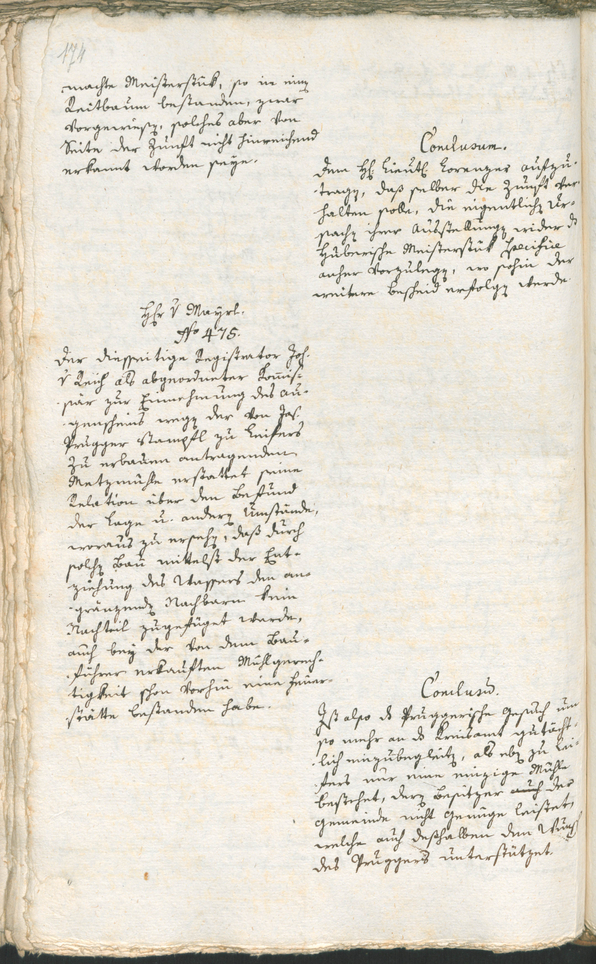 174
machte Meisterstük, so in einem
Reitbaum bestanden, zwar
vorgewiesen, solches aber von
Seite der Zunft nicht hinreichend
erkannt worden seye.
Conclusum.
Dem H. Lieut. Lorenzer aufzu-
tragen, daß selber die Zunft ver-
halten solle, die eigentlichen Ur-
sachen ihrer Ausstellungen wider das
Huberische Meisterstük specifice
anher vorzulegen, wo sohin der
weitere Bescheid erfolgen werde.
Hr. v Mayrl.
No 475.
Der diesseitige Registrator Joh.
v Reich als abgeordneter Kommis-
sär zur Einnehmung des Au-
genscheins wegen der von Jos.
Prugger Stampfl zu Leifers
zu erbauen antragenden
Metzmühle erstattet seine
Relation über den Befund
der Lage u. andern Umstände,
woraus zu ersehen, daß durch
solchen Bau mittelst der Ent-
ziehung des Wassers den an-
gränzenden Nachbarn kein
Nachteil zugefüget werde,
auch bey der von dem Bau-
führer erkauften Mühlgerech-
tigkeit schon vorhin eine Feuer-
stätte bestanden habe.
Conclusum.
Ist also das Pruggerische Gesuch um
so mehr an das Kreisamt gutächt-
lich einzubegleiten, als eben zu Lei-
fers nur eine einzige Mühle
bestehet, deren Besitzer auch der
Gemeinde nicht Genüge leistet,
welche auch deßhalben den Wunsch
des Pruggers unterstützet.